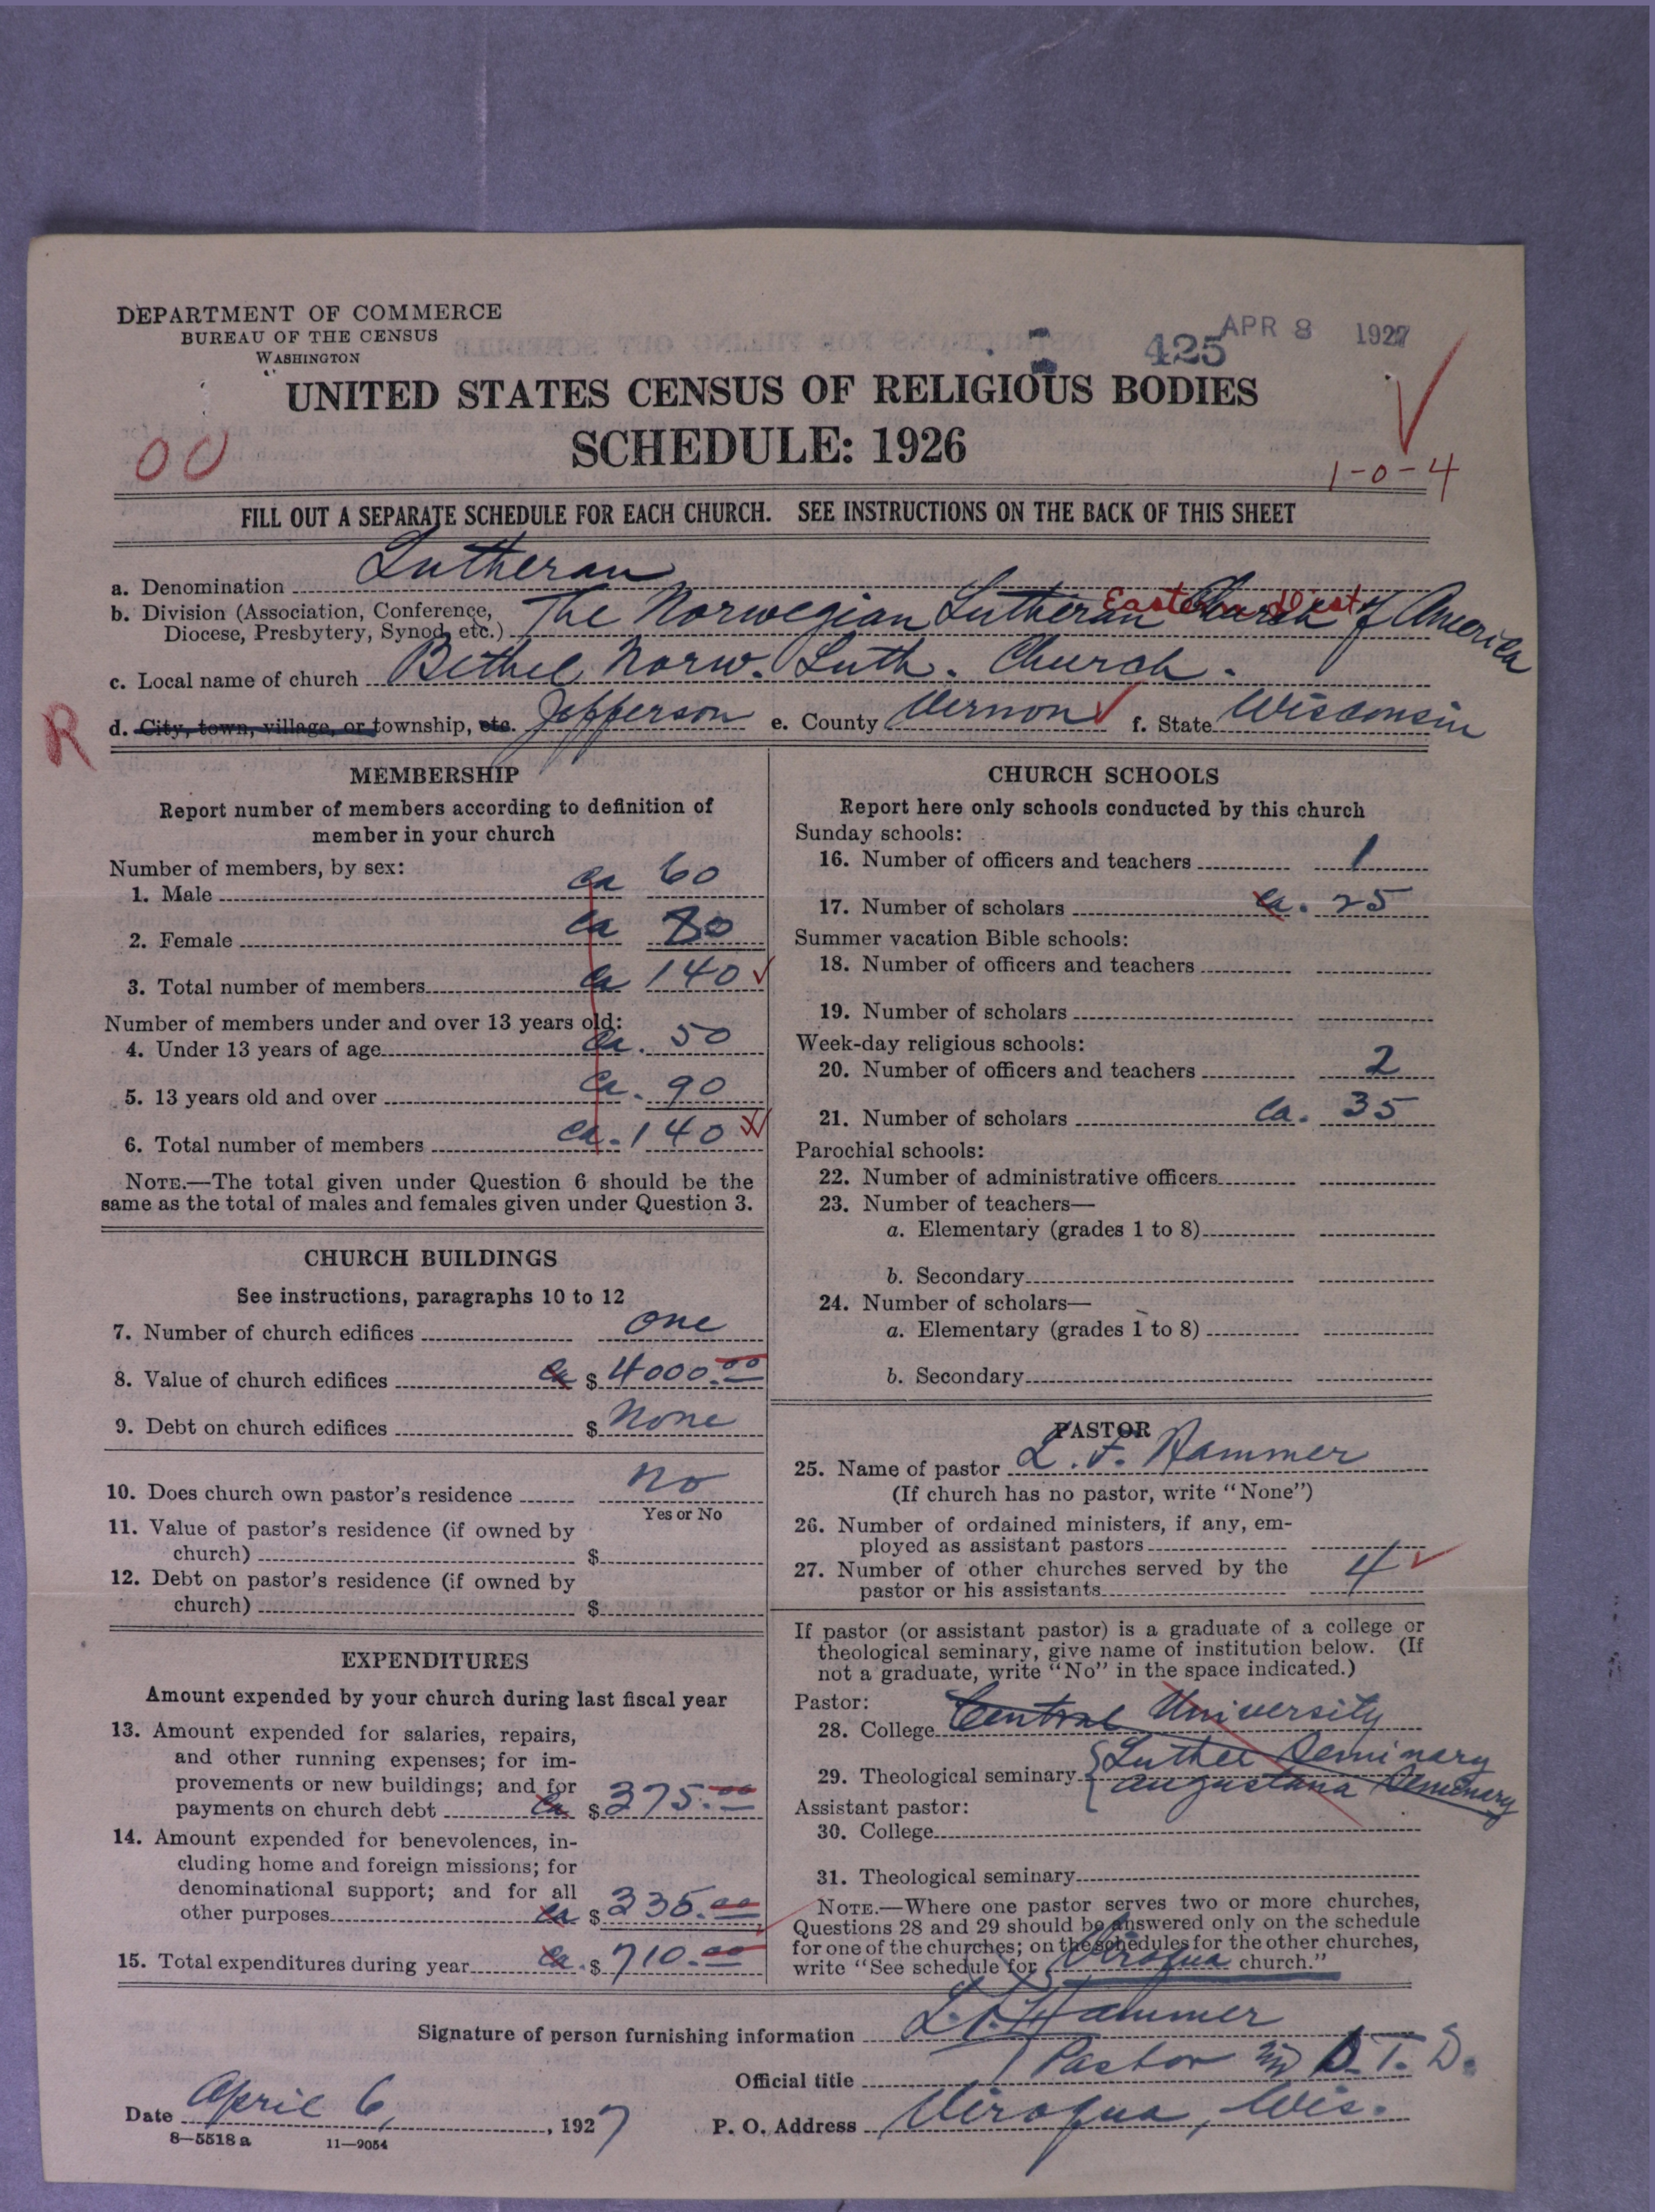 DEPARTMENT OF COMMERCE
BUREAU OF THE CENSUS
WASHINGTON
425 APR 8 1927
UNITED STATES CENSUS OF RELIGIOUS BODIES
SCHEDULE: 1926
00
1-0-4
FILL OUT A SEPARATE SCHEDULE FOR EACH CHURCH. SEE INSTRUCTIONS ON THE BACK OF THIS SHEET
a. Denomination Lutheran
Eastern Dist
b. Division (Association, Conference, Diocese, Presbytery, Synod, etc.) The Norwegian Lutheran Church of America
c. Local name of church Bethel Norw. Luth. Church.
R
d. City, town, village, or township, etc. Jefferson e. County Vernon f. State Wisconsin
MEMBERSHIP
Report number of members according to definition of
member in your church
Number of members, by sex:
1. Male ca 60
2. Female ca 80
3. Total number of members ca 140
Number of members under and over 13 years old:
4. Under 13 years of age ca. 50
5. 13 years old and over ca. 90
6. Total number of members ca. 140
NOTE.—The total given under Question 6 should be the
same as the total of males and females given under Question 3.
CHURCH BUILDINGS
See instructions, paragraphs 10 to 12
7. Number of church edifices one
8. Value of church edifices ca $ 4000.00
9. Debt on church edifices $ None
10. Does church own pastor's residence No
Yes or No
11. Value of pastor's residence (if owned by
church) $
12. Debt on pastor's residence (if owned by
church) $
EXPENDITURES
Amount expended by your church during last fiscal year
13. Amount expended for salaries, repairs,
and other running expenses; for im-
provements or new buildings; and for
payments on church debt ca $ 375.00
14. Amount expended for benevolences, in-
cluding home and foreign missions; for
denominational support; and for all
other purposes ca $ 335.00
15. Total expenditures during year ca. $ 710.00
CHURCH SCHOOLS
Report here only schools conducted by this church
Sunday schools:
16. Number of officers and teachers 1
17. Number of scholars ca. 25
Summer vacation Bible schools:
18. Number of officers and teachers
19. Number of scholars
Week-day religious schools:
20. Number of officers and teachers 2
21. Number of scholars ca. 35
Parochial schools:
22. Number of administrative officers
23. Number of teachers—
a. Elementary (grades 1 to 8)
b. Secondary
24. Number of scholars—
a. Elementary (grades 1 to 8)
b. Secondary
PASTOR
25. Name of pastor L. F. Hammer
(If church has no pastor, write "None")
26. Number of ordained ministers, if any, em-
ployed as assistant pastors
27. Number of other churches served by the
pastor or his assistants 4
If pastor (or assistant pastor) is a graduate of a college or
theological seminary, give name of institution below. (If
not a graduate, write "No" in the space indicated.)
Pastor:
28. College Central University
29. Theological seminary Luther Seminary
Augustana Seminary
Assistant pastor:
30. College
31. Theological seminary
NOTE.—Where one pastor serves two or more churches,
Questions 28 and 29 should be answered only on the schedule
for one of the churches; on the schedules for the other churches,
write "See schedule for Viroqua church."
Signature of person furnishing information L. F. Hammer
Official title Pastor D. T. S.
Date April 6, 1927 P. O. Address Viroqua, Wis.
8—5518 a 11—9054